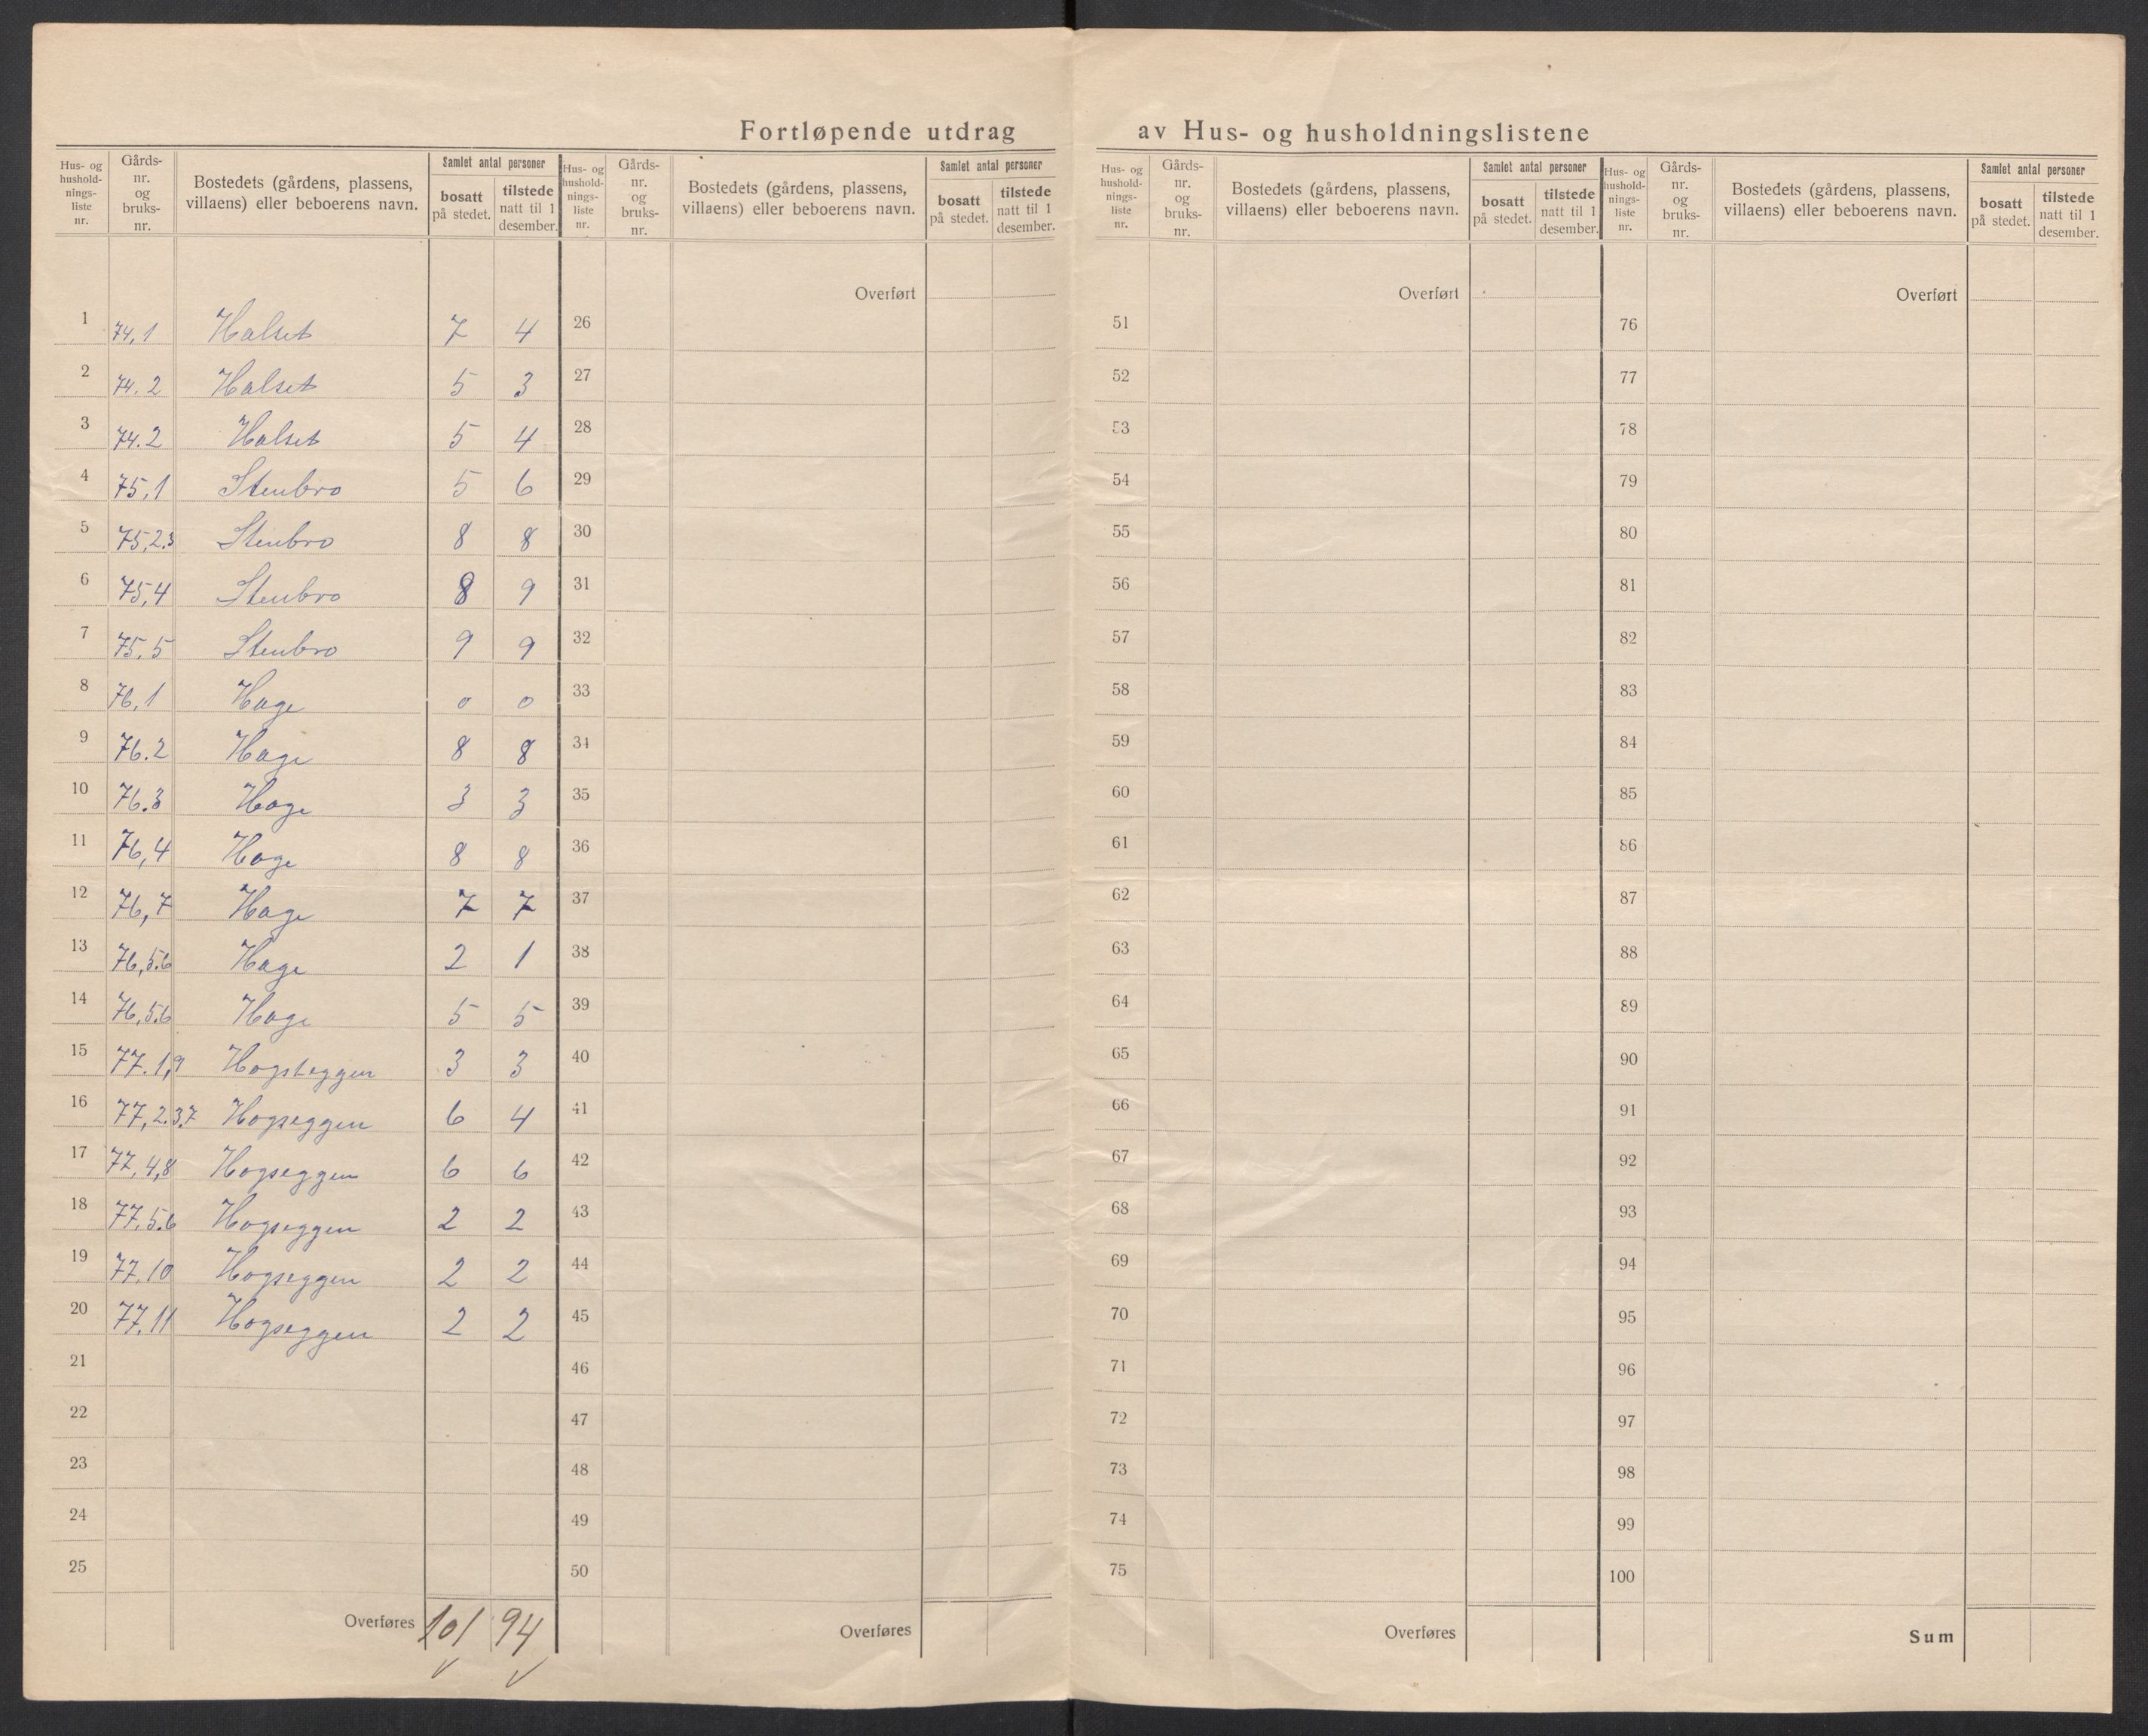 Fortløpende utdrag av Hus- og husholdningslistene
Hus- og hushold-nings-liste nr. | Gårds-nr. og bruks-nr. | Bostedets (gårdens, plassens, villaens) eller beboerens navn. | Samlet antal personer | bosatt på stedet. | tilstede natt til 1 desember.
1 74,1 Halset 7 4
2 74.2 Halset 5 3
3 74.2 Halset 5 4
4 75,1 Stenbro 5 6
5 75,2.3 Stenbro 8 8
6 75,4 Stenbro 8 9
7 75.5 Stenbro 9 9
8 76,1 Hage 0 0
9 76.2 Hage 8 8
10 76.3 Hage 3 3
11 76,4 Hage 8 8
12 76,7 Hage 7 7
13 76,5.6 Hage 2 1
14 76,5.6 Hage 5 5
15 77.1,9 Hogsteggen 3 3
16 77,2.3.7 Hogseggen 6 4
17 77,4,8 Hogseggen 6 6
18 77,5.6 Hogseggen 2 2
19 77,10 Hogseggen 2 2
20 77,11 Hogseggen 2 2
21
22
23
24
25
Overføres 101 94
Hus- og hushold-nings-liste nr. | Gårds-nr. og bruks-nr. | Bostedets (gårdens, plassens, villaens) eller beboerens navn. | Samlet antal personer | bosatt på stedet. | tilstede natt til 1 desember.
Overført
26
27
28
29
30
31
32
33
34
35
36
37
38
39
40
41
42
43
44
45
46
47
48
49
50
Overføres
Hus- og hushold-nings-liste nr. | Gårds-nr. og bruks-nr. | Bostedets (gårdens, plassens, villaens) eller beboerens navn. | Samlet antal personer | bosatt på stedet. | tilstede natt til 1 desember.
Overført
51
52
53
54
55
56
57
58
59
60
61
62
63
64
65
66
67
68
69
70
71
72
73
74
75
Overføres
Hus- og hushold-nings-liste nr. | Gårds-nr. og bruks-nr. | Bostedets (gårdens, plassens, villaens) eller beboerens navn. | Samlet antal personer | bosatt på stedet. | tilstede natt til 1 desember.
Overført
76
77
78
79
80
81
82
83
84
85
86
87
88
89
90
91
92
93
94
95
96
97
98
99
100
Sum